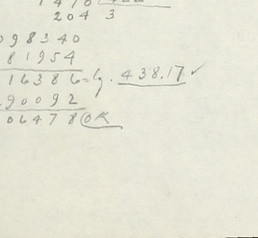 1 4 7 0
2 0 4 3
0 9 8 3 4 0
8 1 9 5 4
1 6 3 8 6 = lg. 438.17 ✓
9 0 0 9 2
0 6 4 7 8 OK